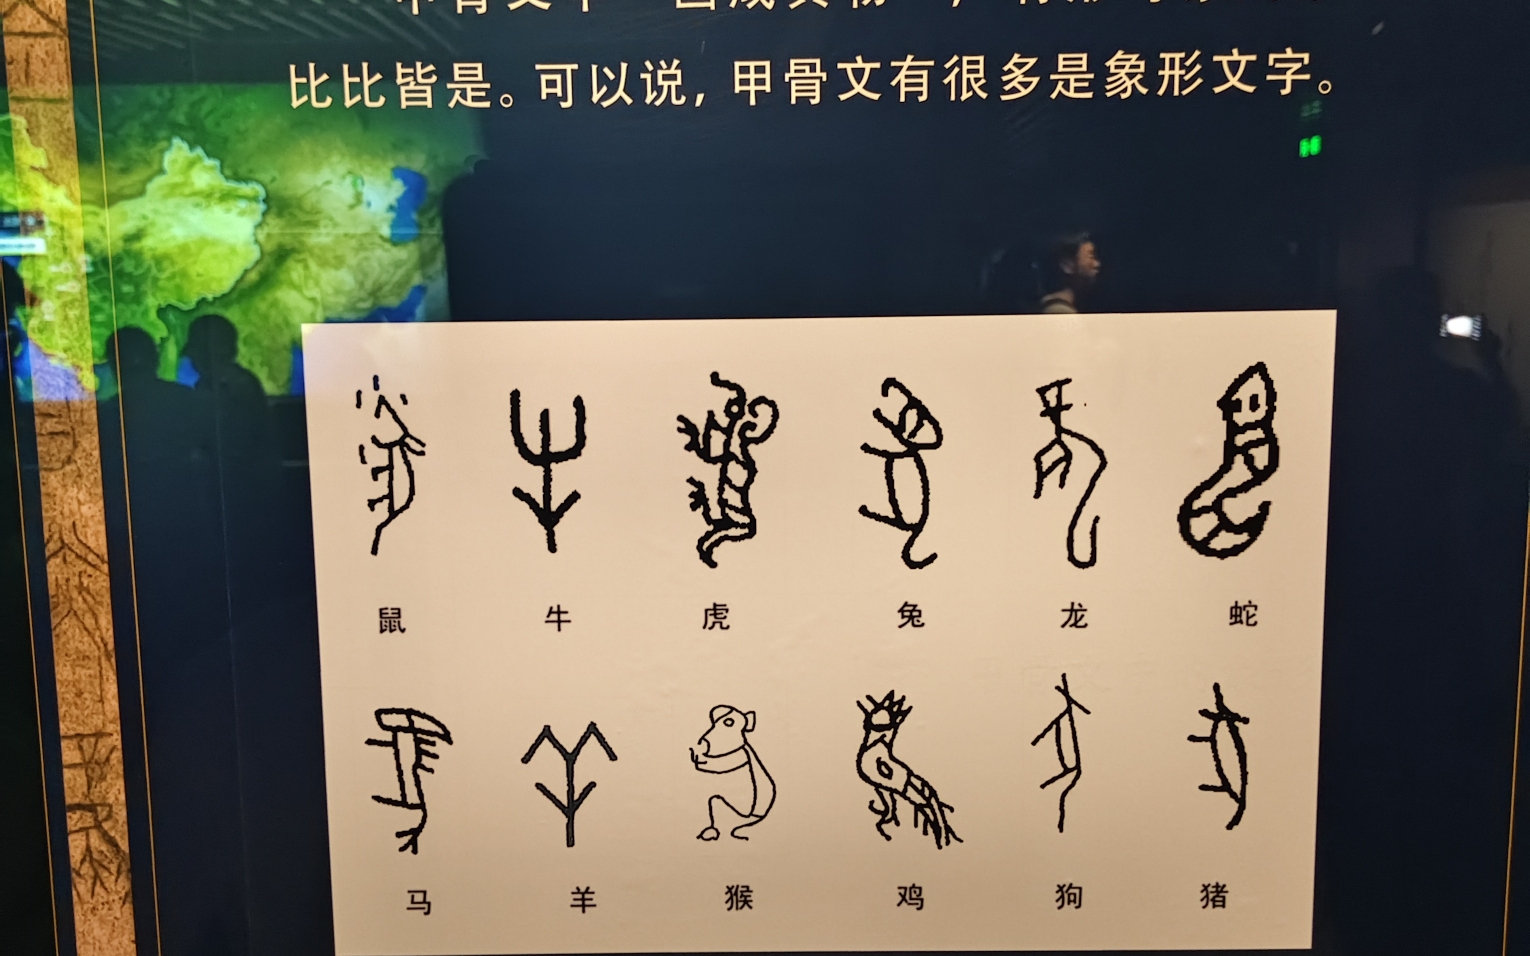 比比皆是。可以说，甲骨文有很多是象形文字。
鼠 牛 虎 兔 龙 蛇
马 羊 猴 鸡 狗 猪